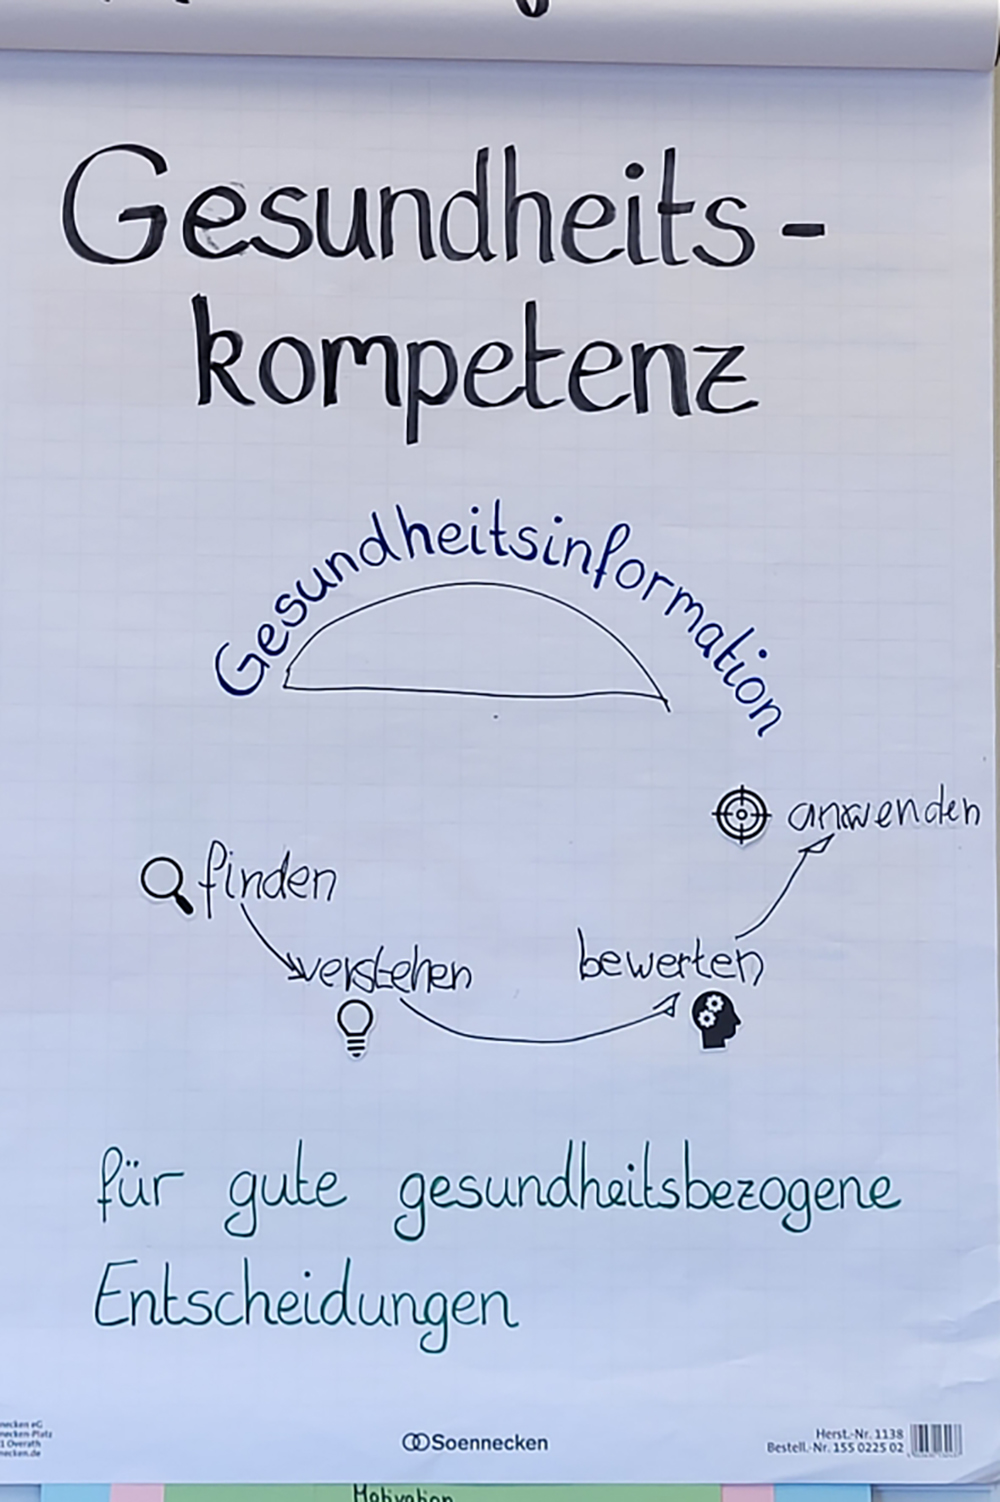 Gesundheits-
kompetenz
Gesundheitsinformation
anwenden
finden
verstehen
bewerten
für gute gesundheitsbezogene
Entscheidungen
necken eG
necken-Platz
1 Overath
necken.de
Soennecken
Herst.-Nr. 1138
Bestell.-Nr. 155 0225 02
Motivation